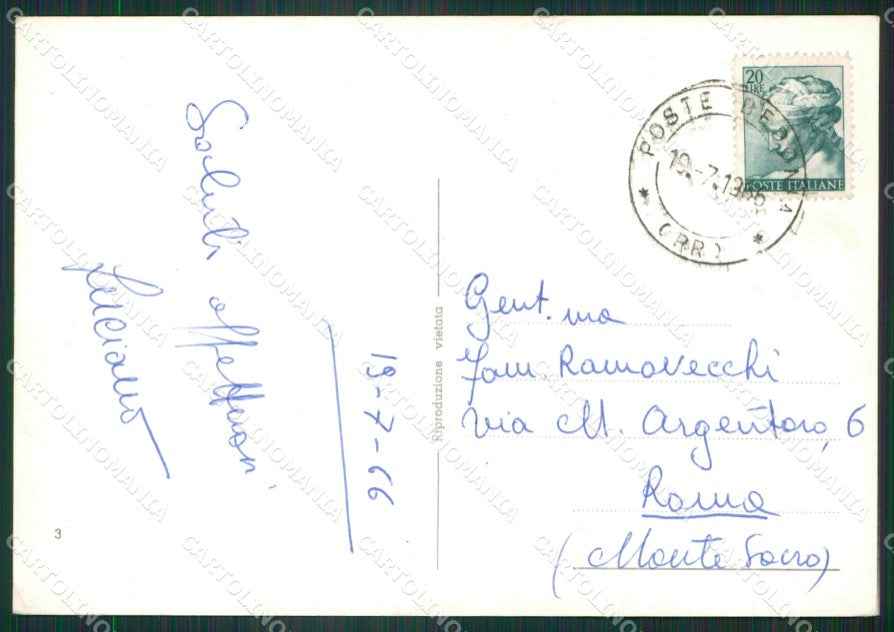 Saluti
affettuosi
Luciano
19-7-66
Riproduzione vietata
3
20
LIRE
POSTE ITALIANE
POSTE
19-7-1966
Gent.ma
Fam. Ramovecchi
Via M. Argentaro, 6
Roma
(Monte Sacro)
CARTOLINOMANIA